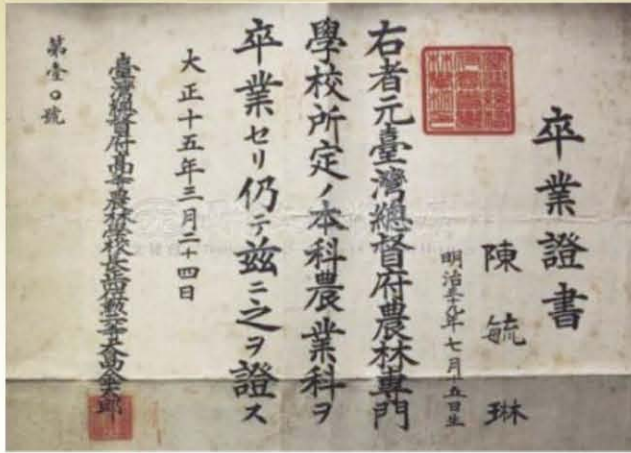 卒業證書
陳毓琳
明治卅九年七月十五日生
右者元臺灣總督府農林專門
學校所定ノ本科農業科ヲ
卒業セリ仍テ茲ニ之ヲ證ス
大正十五年三月二十四日
臺灣總督府高等農林學校長
第壹〇號